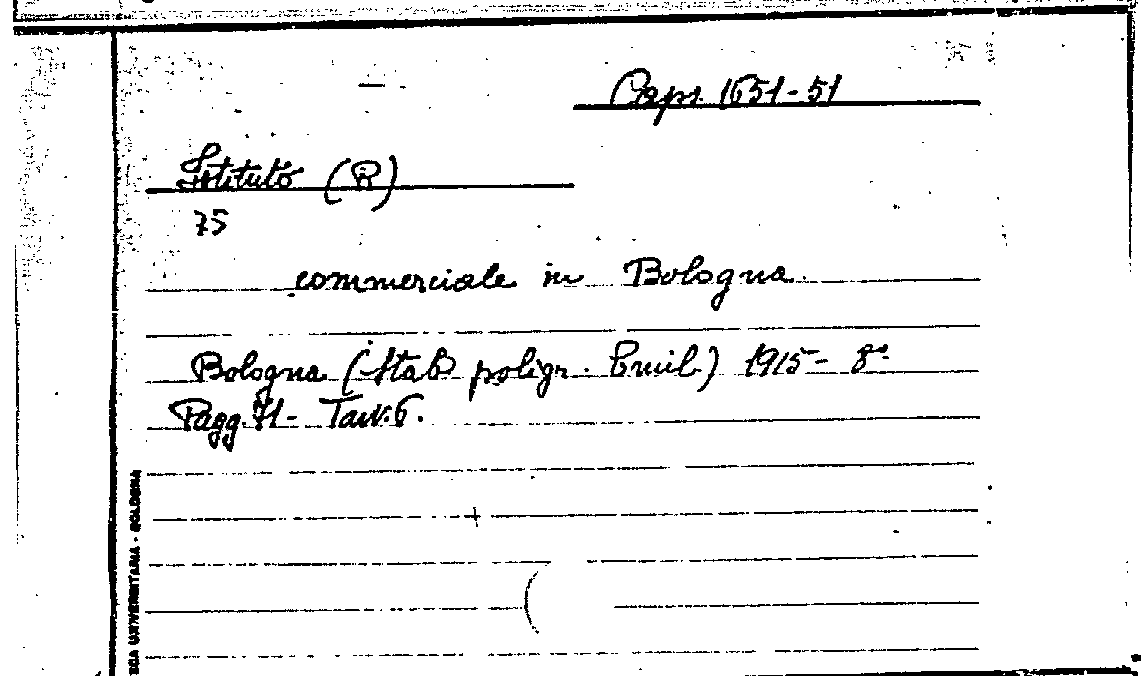 Caps. 1651-51
Istituto (R)
75
commerciale in Bologna.
Bologna (Stab. poligr. Emil.) 1915 - 8°.
Pagg. 71 - Tav. 6.
ECA UNIVERSITARIA - BOLOGNA